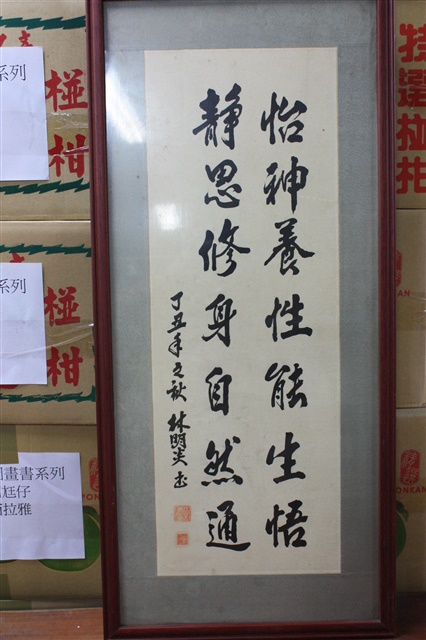 怡神養性能生悟
靜思修身自然通
丁丑年之秋 林明炎書
系列
椪柑
系列
椪柑
圖畫書系列
尪仔
西拉雅
特選椪柑
PONKAN
PONKAN